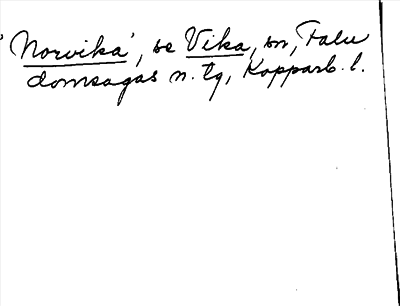 'Norvika', se Vika, sn, Falu
domsagas n. tg, Kopparb. l.